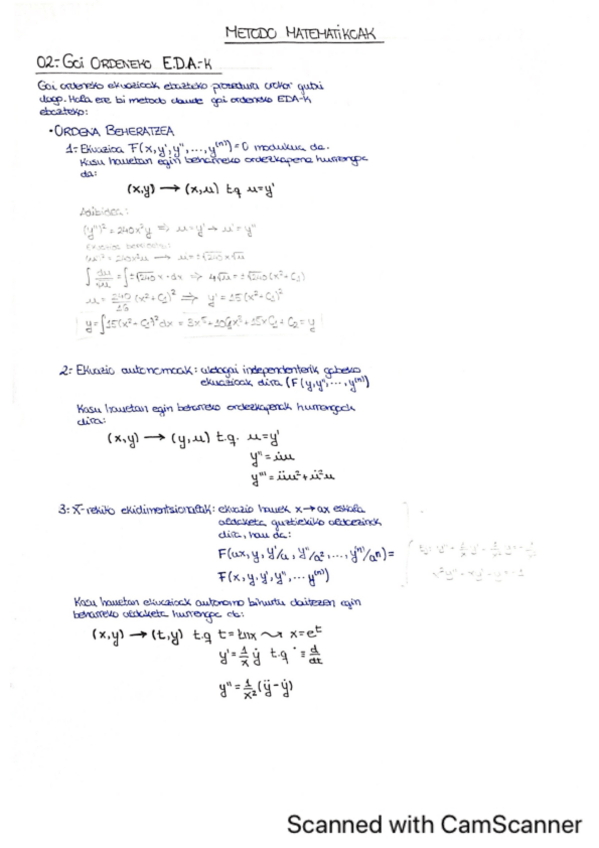 METODO MATEMATIKOAK
02.- GOI ORDENEKO E.D.A.-K
Goi ordeneko ekuazioak ebazteko prozedura orokor gutxi
dago. Hala ere bi metodo daude goi ordeneko EDA-k
ebazteko:
• ORDENA BEHERATZEA
1.- Ekuazioa F(x,y',y'',...,y⁽ⁿ⁾)=0 modukua da.
Kasu hauetan egin beharreko ordezkapena hurrengoa
da:
(x,y) → (x,u) t.q. u=y'
Adibidea:
(y'')² = 240x²y' ⇒ u=y' → u'=y''
∫ du/√u = ∫ ±√240 x·dx ⇒ 4√u = ±√240 (x²+C₁)
u = 240/16 (x²+C₁)² ⇒ y' = 15(x²+C₁)²
y = ∫15(x²+C₁)²dx = 3x⁵+10C₁x³+15xC₁²+C₂ = y
2.- Ekuazio autonomoak: aldagai independenterik gabeko
ekuazioak dira (F(y,y'',...,y⁽ⁿ⁾)
Kasu hauetan egin beharreko ordezkapenak hurrengoak
dira:
(x,y) → (y,u) t.q. u=y'
y'' = u̇u
y''' = üu²+u̇²u
3.- X-rekiko ekidimentsionalak: ekuazio hauek x→ax eskala
aldaketa guztiekiko aldaezinak
dira, hau da:
F(ax, y, y'/a, y''/a², ..., y⁽ⁿ⁾/aⁿ) =
F(x, y, y', y'', ... y⁽ⁿ⁾)
Kasu hauetan ekuazioak autonomo bihurtu daitezen egin
beharreko aldaketa hurrengoa da:
(x,y) → (t,y) t.q t=lnx ⤳ x=eᵗ
y' = 1/x ẏ t.q ˙ ≡ d/dt
y'' = 1/x² (ÿ-ẏ)
Scanned with CamScanner